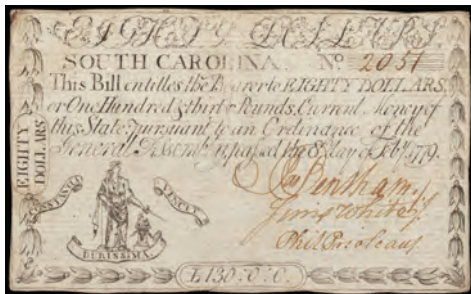 EIGHTY DOLLARS.
SOUTH CAROLINA. No. 2051
This Bill entitles the Bearer to EIGHTY DOLLARS,
or One Hundred & thirty Pounds, Current Money of
this State, pursuant to an Ordinance of the
General Assembly, passed the 8th day of Feby. 1779.
EIGHTY
DOLLARS
CONSTANTIA
VINCIT
DURISSIMA.
James White
Phil Prioleau
£130:0:0.